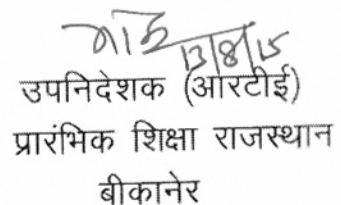 13/8/15
उपनिदेशक (आरटीई)
प्रारंभिक शिक्षा राजस्थान
बीकानेर